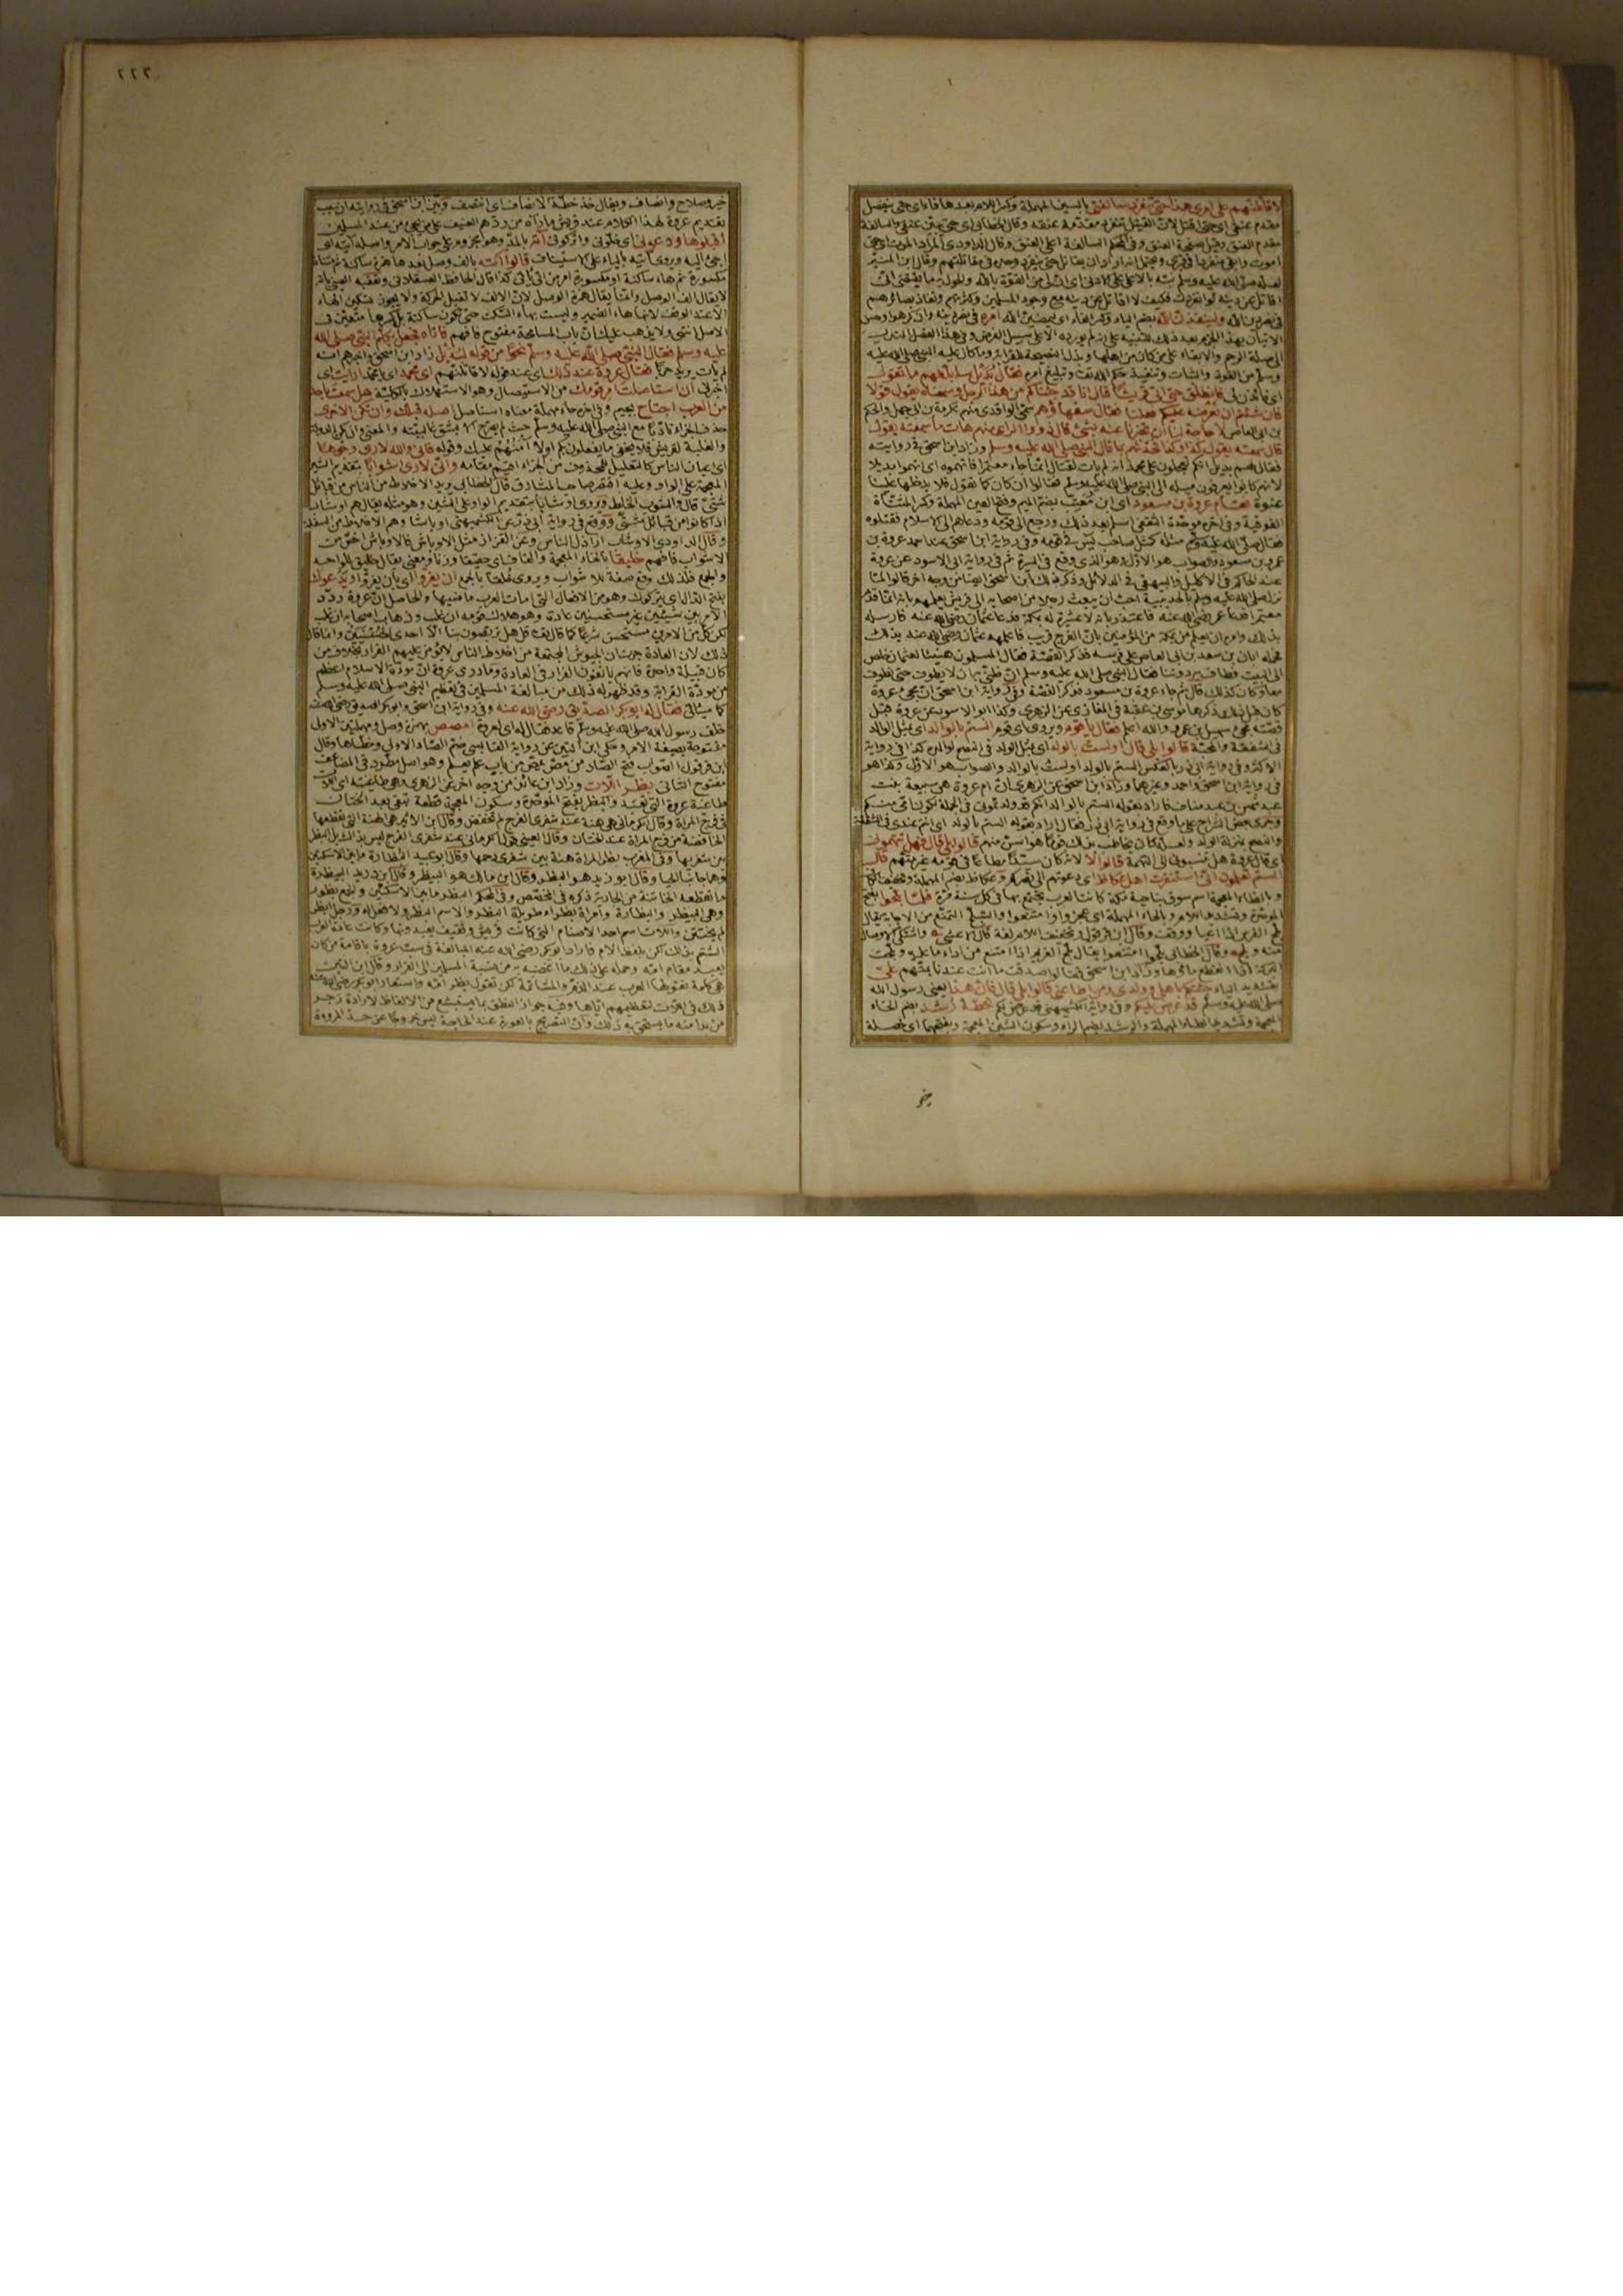 لاقاتلنهم على امرى هذا حتى تنفرد سالفتى بالسين المهملة وكسر اللام بعدها فاء اى حتى ينفصل
مقدم عنقى اى حتى اقتل لان القتيل تنفرد مقدمة عنقه وقال الخطابى اى حتى يبين عنقى والسالفة
مقدم العنق وقيل صفحة العنق وفى المحكم السالفة اعلى العنق وقال الداودى المراد الموت اى حتى
اموت وابقى منفردا فى قبرى ويحتمل انه اراد ان يقاتل حتى ينفرد وحده فى مقاتلتهم وقال ابن المنير
لعله صلى الله عليه وسلم نبه بالادنى على الاعلى اى ان لى من القوة بالله والحول به ما يقتضى انى
اقاتل عن دينه لو انفردت فكيف لا اقاتل عن دينه مع وجود المسلمين وكثرتهم ونفاذ بصائرهم
فى نصر دين الله ولينفذن الله بضم الياء وكسر الفاء اى ليمضين الله امره فى نصر دينه
الى صلة الرحم والابقاء على من كان من اهلها وبذل النصيحة للقرابة وما كان عليه النبى صلى الله عليه
وسلم من القوة والثبات وتنفيذ حكم الله تعالى وتبليغ امره فقال بديل سابلغهم ما تقول
فانطلق حتى اتى قريشا قال انا قد جئناكم من هذا الرجل وسمعناه يقول قولا
فان شئتم ان نعرضه عليكم فعلنا فقال سفهاؤهم سمى الواقدى منهم عكرمة بن ابى جهل والحكم
بن ابى العاص لا حاجة لنا ان تخبرنا عنه بشئ قال ذووا الراى منهم هات ما سمعته يقول
قال سمعته يقول كذا وكذا فحدثهم بما قال النبى صلى الله عليه وسلم وزاد ابن اسحق فى روايته
فقال لهم بديل انكم تعجلون على محمد انه لم يات لقتال انما جاء معتمرا فاتهموه اى اتهموا بديلا
لانهم كانوا يعرفون ميله الى النبى صلى الله عليه وسلم فقالوا ان كان كما تقول فلا يدخلها علينا
عنوة فقام عروة بن مسعود اى ابن معتب بضم الميم وفتح العين المهملة وكسر المثناة
الفوقية وفى اخره موحدة الثقفى اسلم بعد ذلك ورجع الى قومه ودعاهم الى الاسلام فقتلوه
فقال صلى الله عليه وسلم مثله كمثل صاحب يس فى قومه وفى رواية ابن اسحق عند احمد عروة بن
عمرو بن مسعود والصواب هو الاول وهو الذى وقع فى السيرة ثم فى رواية ابى الاسود عن عروة
عند الحاكم فى الاكليل والبيهقى فى الدلائل وذكر ذلك ابن اسحق ايضا من وجه اخر قالوا لما
نزل صلى الله عليه وسلم بالحديبية احب ان يبعث رجلا من اصحابه الى قريش يعلمهم بانه انما قدم
معتمرا فدعا عمر رضى الله عنه فاعتذر بانه لا عشيرة له بمكة فدعا عثمان رضى الله عنه فارسله
بذلك وامره ان يعلم من بمكة من المؤمنين بان الفرج قريب فاعلمهم عثمان رضى الله عنه بذلك
فحمله ابان بن سعيد بن العاص على فرسه فذكر القصة فقال المسلمون هنيئا لعثمان خلص
الى البيت فطاف به دوننا فقال النبى صلى الله عليه وسلم ان ظنى به ان لا يطوف حتى نطوف
معا وكان كذلك قال ثم جاء عروة بن مسعود فذكر القصة وفى رواية ابن اسحق ان مجئ عروة
كان قبل ذلك ذكرها موسى بن عقبة فى المغازى عن الزهرى وكذا ابو الاسود عن عروة قبل
قصة مجئ سهيل بن عمرو والله اعلم فقال يا قوم ويروى اى قوم الستم بالوالد اى مثل الوالد
فى الشفقة والمحبة قالوا بلى قال اولستُ بالولد اى مثل الولد فى النصح لوالده كذا فى رواية
الاكثر وفى رواية ابى ذر بالعكس الستم بالولد اولست بالوالد والصواب هو الاول وكذا هو
فى رواية ابن اسحق واحمد وغيرهما وزاد ابن اسحق عن الزهرى ان ام عروة هى سبيعة بنت
عبد شمس بن عبد مناف فاراد بقوله الستم بالوالد انكم قد ولدتمونى فى الجملة لكون امى منكم
وجرى بعض الشراح على ما وقع فى رواية ابى ذر فقال اراد بقوله الستم بالولد اى انتم عندى فى الشفقة
والنصح بمنزلة الولد ولعله كان يخاطب بذلك قوما هو اسن منهم قالوا بلى قال فهل تتهمونى
اى قال عروة هل تنسبونى الى التهمة قالوا لا لانه كان سيدا مطاعا فى قومه غير متهم قال
الستم تعلمون انى استنفرت اهل عكاظ اى دعوتهم الى نصركم وعكاظ بضم المهملة وتخفيف الكاف
وبالظاء المعجمة اسم سوق بناحية مكة كانت العرب تجتمع بها فى كل سنة مرة فلما بلحوا بفتح
الموحدة وتشديد اللام وبالحاء المهملة اى عجزوا او امتنعوا والتبلح التمنع من الاجابة يقال
بلح الفرس اذا اعيا ووقف وقال ابن قرقول وتخفيف اللام لغة
بتشديد الياء جئتكم باهلى وولدى ومن اطاعنى قالوا بلى قال فان هذا يعنى رسول الله
صلى الله عليه وسلم قد عرض عليكم وفى رواية الكشميهنى قد عرض لكم خطة رشد بضم الخاء
المعجمة وتشديد الطاء المهملة والرشد بضم الراء وسكون الشين المعجمة وبفتحهما اى خصلة
خير
٢٢٢
خير وصلاح وانصاف ويقال خذ خطة الانصاف اى انتصف وبين ابن اسحق فى روايته ان سبب
تقديم عروة لهذا الكلام عند قريش ما رآه من ردهم العنيف على من يجئ من عند المسلمين
اقبلوها ودعونى اى خلونى واتركونى آته بالمد وهو مجزوم على جواب الامر واصله آتيه اى
اجئ اليه ويروى آتيه بالياء على الاستيناف قالوا ائته بالف وصل بعدها همزة ساكنة ثم مثناة
مكسورة ثم هاء ساكنة او مكسورة امر من اتى ياتى كذا قال الحافظ العسقلانى وتعقبه العينى بانه
لا يقال الف الوصل وانما يقال همزة الوصل لان الالف لا تقبل الحركة ولا يجوز تسكين الهاء
الا عند الوقف لانها هاء الضمير وليست بهاء السكت حتى تكون ساكنة بل كسرها متعين فى
الاصل انتهى ولا يذهب عليك ان باب المسامحة مفتوح فافهم فاتاه فجعل يكلم النبى صلى الله
عليه وسلم فقال النبى صلى الله عليه وسلم نحوا من قوله لبديل زاد ابن اسحق واخبرهم انه
لم يات يريد حربا فقال عروة عند ذلك اى عند قوله لاقاتلنهم اى محمد اى يا محمد ارايت اى
اخبرنى ان استاصلت امر قومك من الاستيصال وهو الاستهلاك بالكلية هل سمعت باحد
من العرب اجتاح بجيم وفى اخره حاء مهملة معناه استاصل اصله قبلك وان تكن الاخرى
حذف الجزاء تادبا مع النبى صلى الله عليه وسلم حيث لم يصرح الا بشق غالبيته والمعنى وان تكن الدولة
والغلبة لقريش فلا يخفى ما يفعلون بكم اولا آمنهم عليك وقوله فانى والله لارى وجوها
اى اعيان الناس كالتعليل للمحذوف من الجزاء اقيم مقامه وانى لارى اشوابا بتقديم الشين
المعجمة على الواو وعليه اقتصر صاحب المشارق قال الخطابى يريد الاخلاط من الناس من قبائل
شتى قال والشوب الخلط ويروى اوشابا بتقديم الواو على الشين وهو مثله يقال هم اوشاب
اذا كانوا من قبائل شتى ووقع فى رواية ابى ذر عن الكشميهنى اوباشا وهم الاخلاط من السفلة
وقال الداودى الاوشاب اراذل الناس وعن القزاز مثل الاوباش فالاوباش اخص من
الاشواب فافهم خليقا بالخاء المعجمة والقاف اى حقيقا وزنا ومعنى يقال خليق للواحد
والجمع فلذلك وقع صفة للاشواب ويروى خلقاء بالجمع ان يفروا اى بان يفروا ويدعوك
بفتح الدال اى يتركوك وهو من الافعال التى امات العرب ماضيها والحاصل ان عروة ردد
الامر بين شيئين غير مستحسنين عادة وهو هلاك قومه ان غلب وذهاب اصحابه ان غلب
لكن كل من الامرين مستحسن شرعا كما قال تعالى قل هل تربصون بنا الا احدى الحسنيين وانما قال
ذلك لان العادة جرت ان الجيوش المجتمعة من اخلاط الناس لا يؤمن عليهم الفرار بخلاف من
كان قبيلة واحدة فانهم يانفون الفرار فى العادة وما درى عروة ان مودة الاسلام اعظم
من مودة القرابة وقد ظهر له ذلك من مبالغة المسلمين فى تعظيم النبى صلى الله عليه وسلم
كما سياتى فقال له ابو بكر الصديق رضى الله عنه وفى رواية ابن اسحق وابو بكر الصديق رضى الله عنه
خلف رسول الله صلى الله عليه وسلم قاعد فقال له اى لعروة امصص بهمزة وصل ومهملتين الاولى
مفتوحة بصيغة الامر وحكى ابن التين عن رواية القابسى ضم الصاد الاولى وخطاها وقال
ابن قرقول الصواب فتح الصاد من مص يمص من باب علم يعلم وهو اصل مطرد فى المضاعف
مفتوح الثانى بظر اللات وزاد ابن عائذ من وجه اخر عن الزهرى وهى طاغيته اى اللات
طاغية عروة التى تعبد والبظر بفتح الموحدة وسكون المعجمة قطعة تبقى بعد الختان
فى فرج المراة وقال الكرمانى هى هنة عند شفرى الفرج لم تخفض وقال ابن الاثير هى الهنة التى تقطعها
الخافضة من فرج المراة عند الختان وقال العينى قول الكرمانى عند شفرى الفرج ليس بذاك بل البظر
بين شفريها وفى المغرب بظر المراة هنة بين شفرى رحمها وقال ابو عبيد البظارة ما بين الاسكتين
وهما جانبا الحيا وقال ابو زيد هو البظر وقال ابن مالك هو البيظر وقال ابن دريد البيظرة
ما تقطعه الخاتنة من الجارية ذكره فى المخصص وفى المحكم البظر ما بين الاسكتين والجمع بظور
وهى البيظر والبظارة وامراة بظراء طويلة البظر والاسم البظر ولا فعل له ورجل ابظر
لم يختتن واللات اسم احد الاصنام التى كانت قريش وثقيف يعبدونها وكانت عادة العرب
الشتم بذلك لكن بلفظ الام فاراد ابو بكر رضى الله عنه المبالغة فى سب عروة باقامة من كان
يعبد مقام امه وحمله على ذلك ما اغضبه به من نسبة المسلمين الى الفرار وقال ابن التين
هى كلمة تقولها العرب عند الذم والمشاتمة لكن تقول بظر امه واستعار ابو بكر رضى الله عنه
ذلك فى اللات لتعظيمهم اياها وفيه جواز النطق بما يستبشع من الالفاظ لارادة زجر
من بدا منه ما يستحق به ذلك وان التصريح بالعورة عند الحاجة ليس خروجا عن حد المروءة